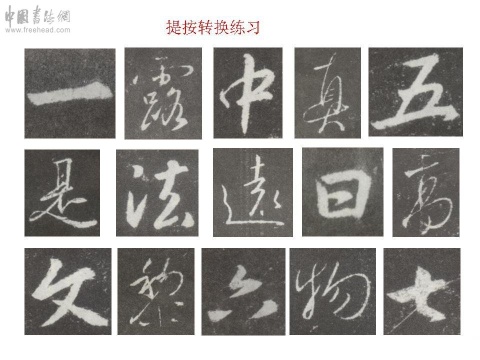 中国书法网
www.freehead.com
提按转换练习
一露中真五
是法遠日高
文黎六物七